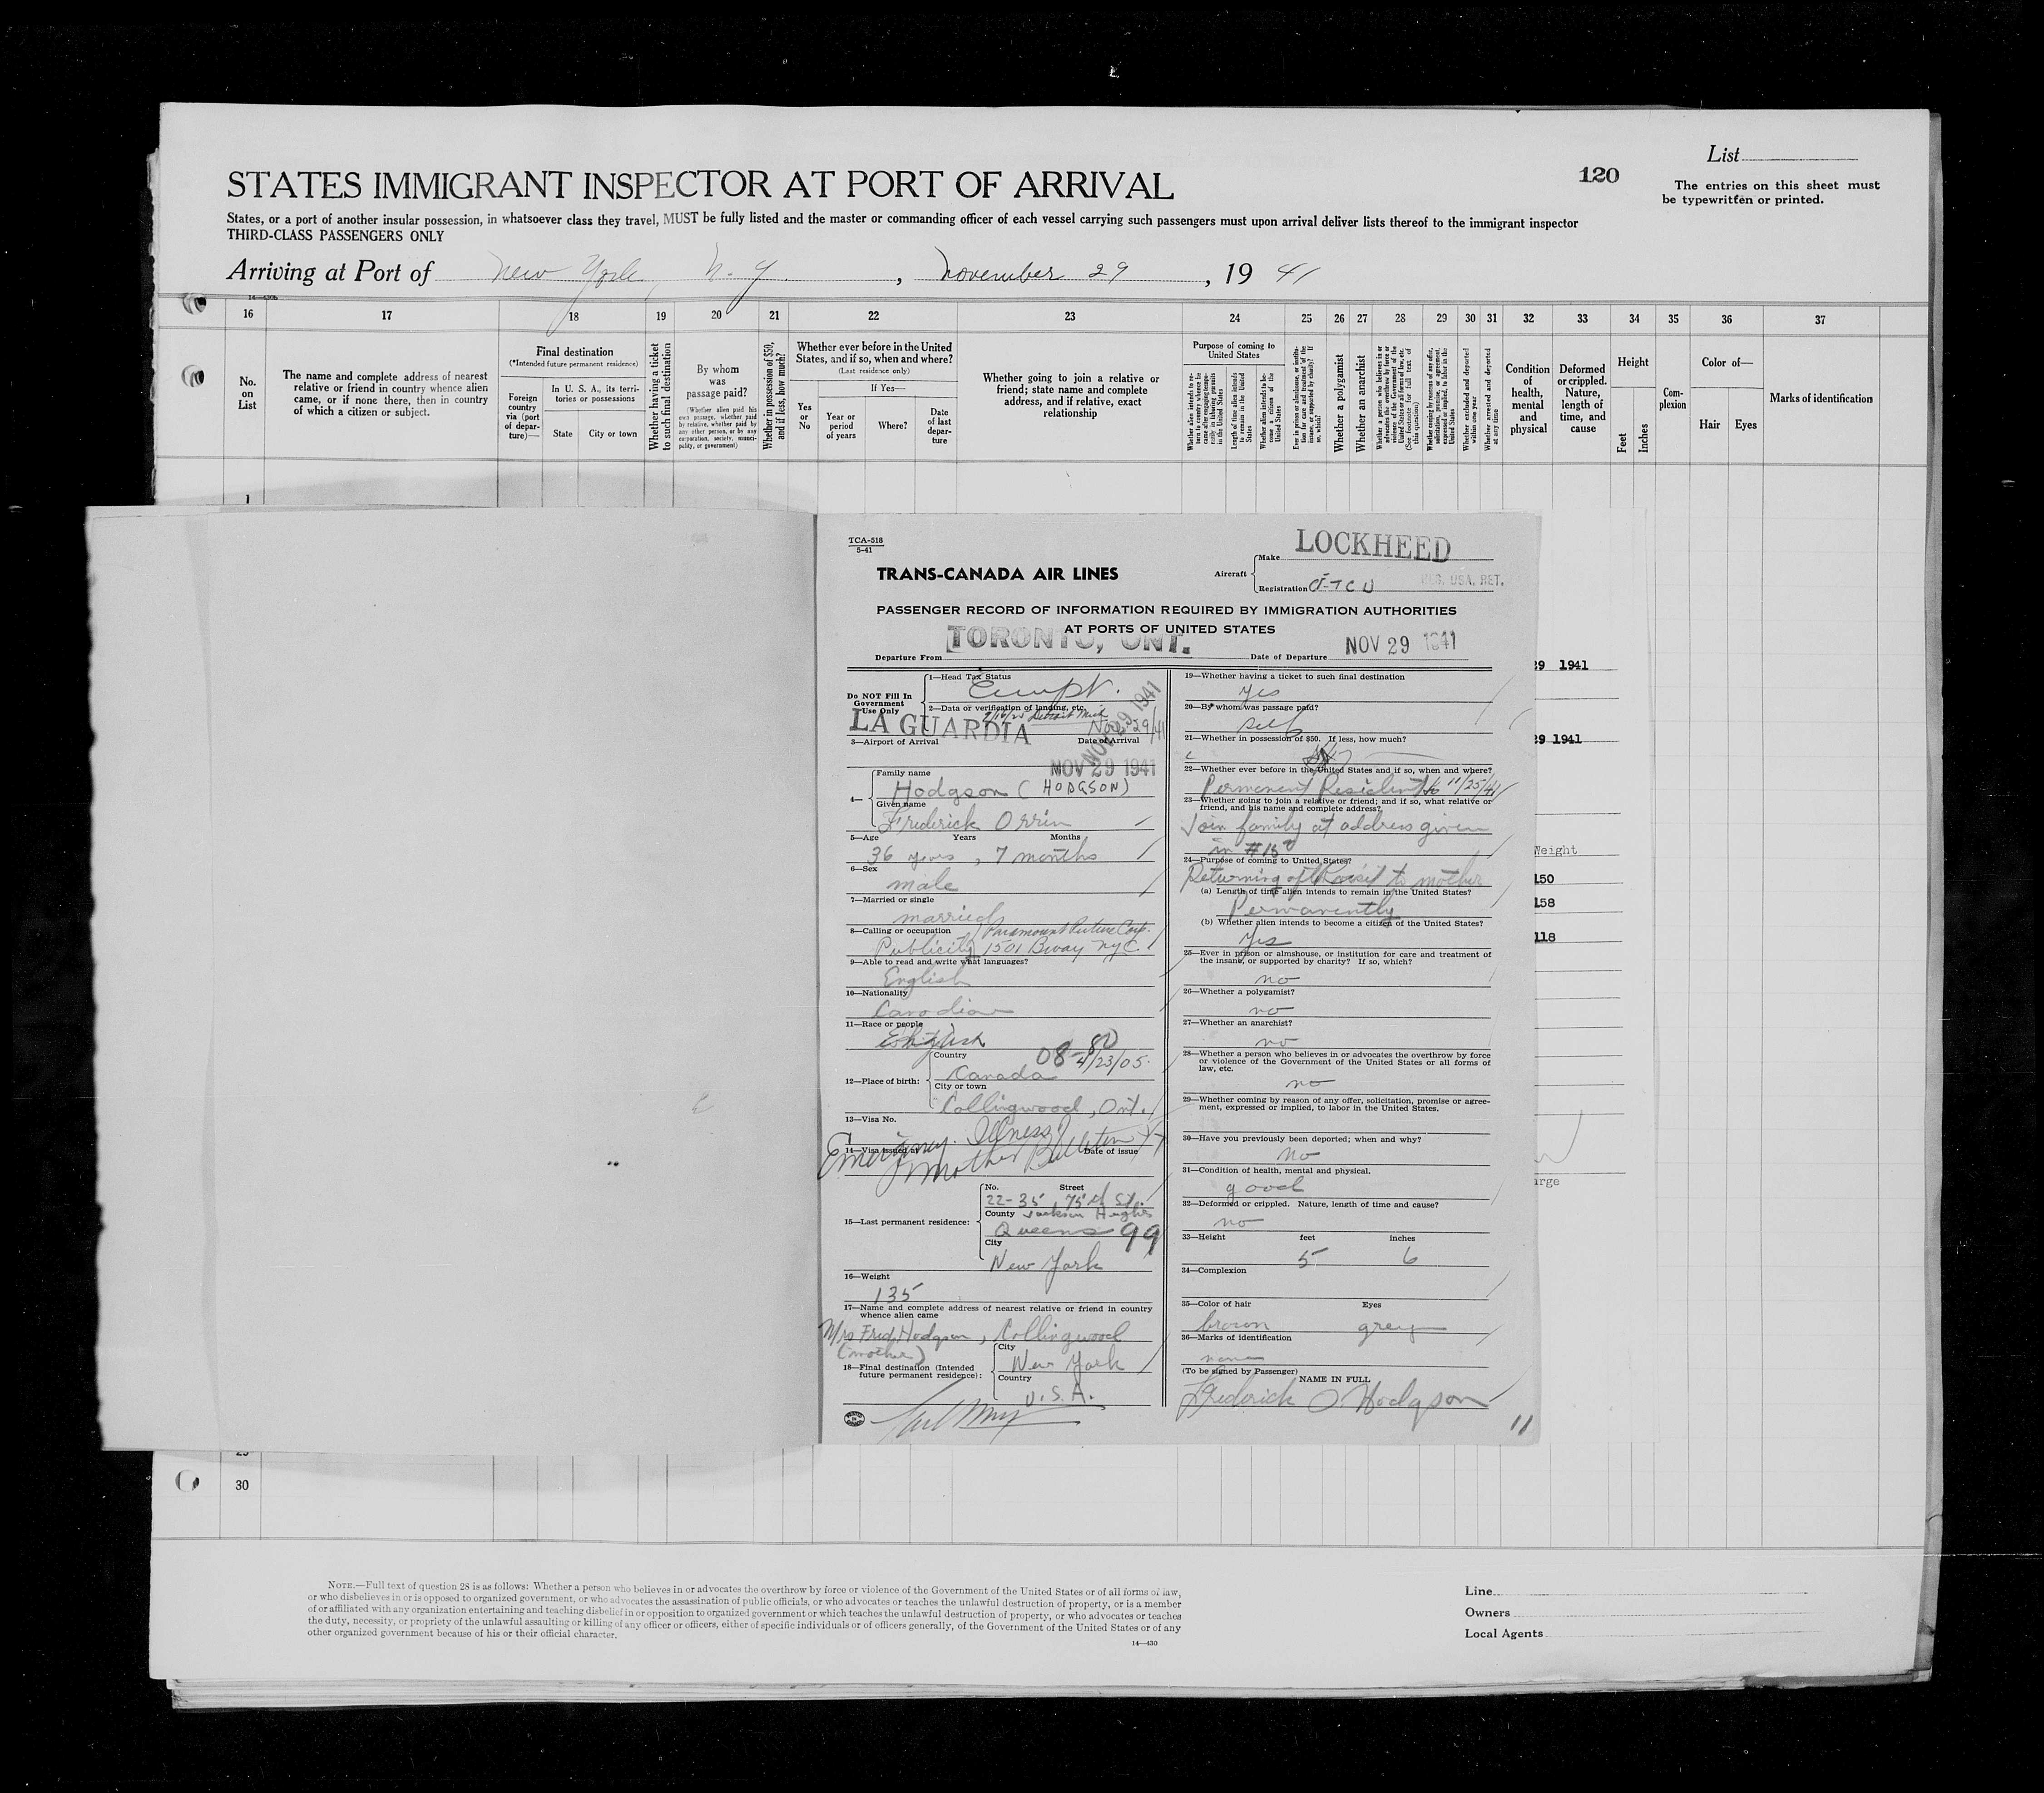 List
120
The entries on this sheet must
be typewritten or printed.
STATES IMMIGRANT INSPECTOR AT PORT OF ARRIVAL
States, or a port of another insular possession, in whatsoever class they travel, MUST be fully listed and the master or commanding officer of each vessel carrying such passengers must upon arrival deliver lists thereof to the immigrant inspector
THIRD-CLASS PASSENGERS ONLY
Arriving at Port of New York, N. Y. , November 29 , 19 41
16 17 18 19 20 21 22 23 24 25 26 27 28 29 30 31 32 33 34 35 36 37
No. on List
The name and complete address of nearest relative or friend in country whence alien came, or if none there, then in country of which a citizen or subject.
Final destination
(*Intended future permanent residence)
Foreign country via (port of departure)—
In U. S. A., its territories or possessions
State
City or town
Whether having a ticket to such final destination
By whom was passage paid?
(Whether alien paid his own passage, whether paid by relative, whether paid by any other person, or by any corporation, society, municipality, or government)
Whether in possession of $50, and if less, how much?
Whether ever before in the United States, and if so, when and where?
(Last residence only)
Yes or No
If Yes—
Year or period of years
Where?
Date of last departure
Whether going to join a relative or friend; state name and complete address, and if relative, exact relationship
Purpose of coming to United States
Length of time alien intends to remain in the United States
Whether alien intends to become a citizen of the United States
Whether a polygamist
Whether an anarchist
Whether excluded and deported within one year
Whether arrested and deported at any time
Condition of health, mental and physical
Deformed or crippled. Nature, length of time, and cause
Height
Feet
Inches
Complexion
Color of—
Hair
Eyes
Marks of identification
1
TCA-518
5-41
TRANS-CANADA AIR LINES
Aircraft
Make LOCKHEED
Registration CF-TCU
PASSENGER RECORD OF INFORMATION REQUIRED BY IMMIGRATION AUTHORITIES
AT PORTS OF UNITED STATES
Departure From TORONTO, ONT.
Date of Departure NOV 29 1941
Do NOT Fill In
Government
Use Only
1—Head Tax Status
Exempt.
2—Data or verification of landing, etc.
Detroit Mich
LA GUARDIA
Nov 29/41
NOV 29 1941
3—Airport of Arrival
Date of Arrival
NOV 29 1941
4—
Family name
Hodgson (HODGSON)
Given name
Frederick Orrin
5—Age Years Months
36 years, 7 months
6—Sex
male
7—Married or single
married
8—Calling or occupation
Publicity Paramount Picture Corp.
1501 Bway NYC.
9—Able to read and write what languages?
English
10—Nationality
Canadian
11—Race or people
English
12—Place of birth:
Country
Canada
4/23/05
City or town
Collingwood, Ont.
13—Visa No.
Emergency. Illness
14—Visa issued at
Date of issue
mother
15—Last permanent residence:
No. Street
22-35 75th St.
County Jackson Heights
Queens 99
City
New York
16—Weight
135
17—Name and complete address of nearest relative or friend in country
whence alien came
Mrs Fred Hodgson, Collingwood
(mother)
18—Final destination (Intended
future permanent residence):
City
New York
Country
U.S.A.
19—Whether having a ticket to such final destination
yes
20—By whom was passage paid?
self
21—Whether in possession of $50. If less, how much?
22—Whether ever before in the United States and if so, when and where?
Permanent Resident to 11/25/41
23—Whether going to join a relative or friend; and if so, what relative or
friend, and his name and complete address?
Join family at address given
in #15
24—Purpose of coming to United States?
Returning after visit to mother
(a) Length of time alien intends to remain in the United States?
Permanently
(b) Whether alien intends to become a citizen of the United States?
Yes
25—Ever in prison or almshouse, or institution for care and treatment of
the insane, or supported by charity? If so, which?
no
26—Whether a polygamist?
no
27—Whether an anarchist?
no
28—Whether a person who believes in or advocates the overthrow by force
or violence of the Government of the United States or all forms of
law, etc.
no
29—Whether coming by reason of any offer, solicitation, promise or agree-
ment, expressed or implied, to labor in the United States.
30—Have you previously been deported; when and why?
No
31—Condition of health, mental and physical.
good
32—Deformed or crippled. Nature, length of time and cause?
no
33—Height feet inches
5 6
34—Complexion
35—Color of hair Eyes
brown grey
36—Marks of identification
none
(To be signed by Passenger)
NAME IN FULL
Frederick O. Hodgson
11
29 1941
29 1941
Weight
150
158
118
arge
30
NOTE.—Full text of question 28 is as follows: Whether a person who believes in or advocates the overthrow by force or violence of the Government of the United States or of all forms of law,
or who disbelieves in or is opposed to organized government, or who advocates the assassination of public officials, or who advocates or teaches the unlawful destruction of property, or is a member
of or affiliated with any organization entertaining and teaching disbelief in or opposition to organized government or which teaches the unlawful destruction of property, or who advocates or teaches
the duty, necessity, or propriety of the unlawful assaulting or killing of any officer or officers, either of specific individuals or of officers generally, of the Government of the United States or of any
other organized government because of his or their official character.
14—430
Line
Owners
Local Agents